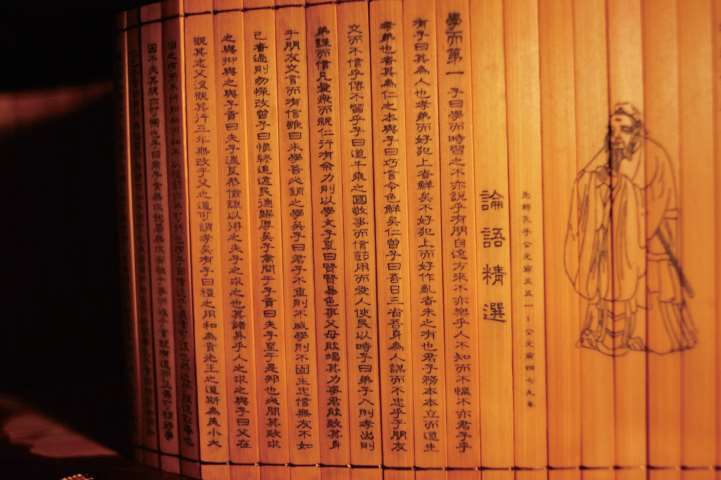 先師孔子公元前五五一~公元前四七九年
論語精選
學而第一 子曰學而時習之不亦說乎有朋自遠方來不亦樂乎人不知而不慍不亦君子乎
有子曰其為人也孝弟而好犯上者鮮矣不好犯上而好作亂者未之有也君子務本本立而道生
孝弟也者其為仁之本與子曰巧言令色鮮矣仁曾子曰吾日三省吾身為人謀而不忠乎于朋友
交而不信乎傳不習乎子曰道千乘之國敬事而信節用而愛人使民以時子曰弟子入則孝出則
弟謹而信凡愛眾而親仁行有余力則以學文子夏曰賢賢易色事父母能竭其力事君能致其身
于朋友交言而有信雖曰未學吾必謂之學矣子曰君子不重則不威學則不固主忠信無友不如
己者過則勿憚改曾子曰慎終追遠民德歸厚矣子禽問于子貢曰夫子至于是邦也必聞其政求
之與抑與之與子貢曰夫子溫良恭儉讓以得之夫子之求之也其諸異乎人之求之與子曰父在
觀其志父沒觀其行三年無改于父之道可謂孝矣有子曰禮之用和為貴先王之道斯為美小大
由之有所不行
因不失其親亦可宗也子曰君子食無求飽居無求安